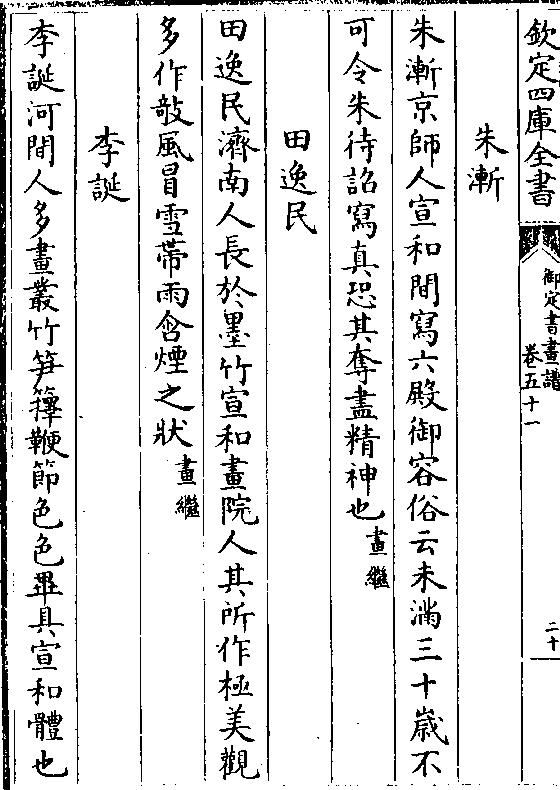 欽定四庫全書
御定書畫譜
卷五十一
二十
朱漸
朱漸京師人宣和間寫六殿御容俗云未滿三十歲不
可令朱待詔寫真恐其奪盡精神也畫繼
田逸民
田逸民濟南人長於墨竹宣和畫院人其所作極美觀
多作敲風冒雪帶雨含煙之狀畫繼
李誕
李誕河間人多畫叢竹笋籜鞭節色色畢具宣和體也